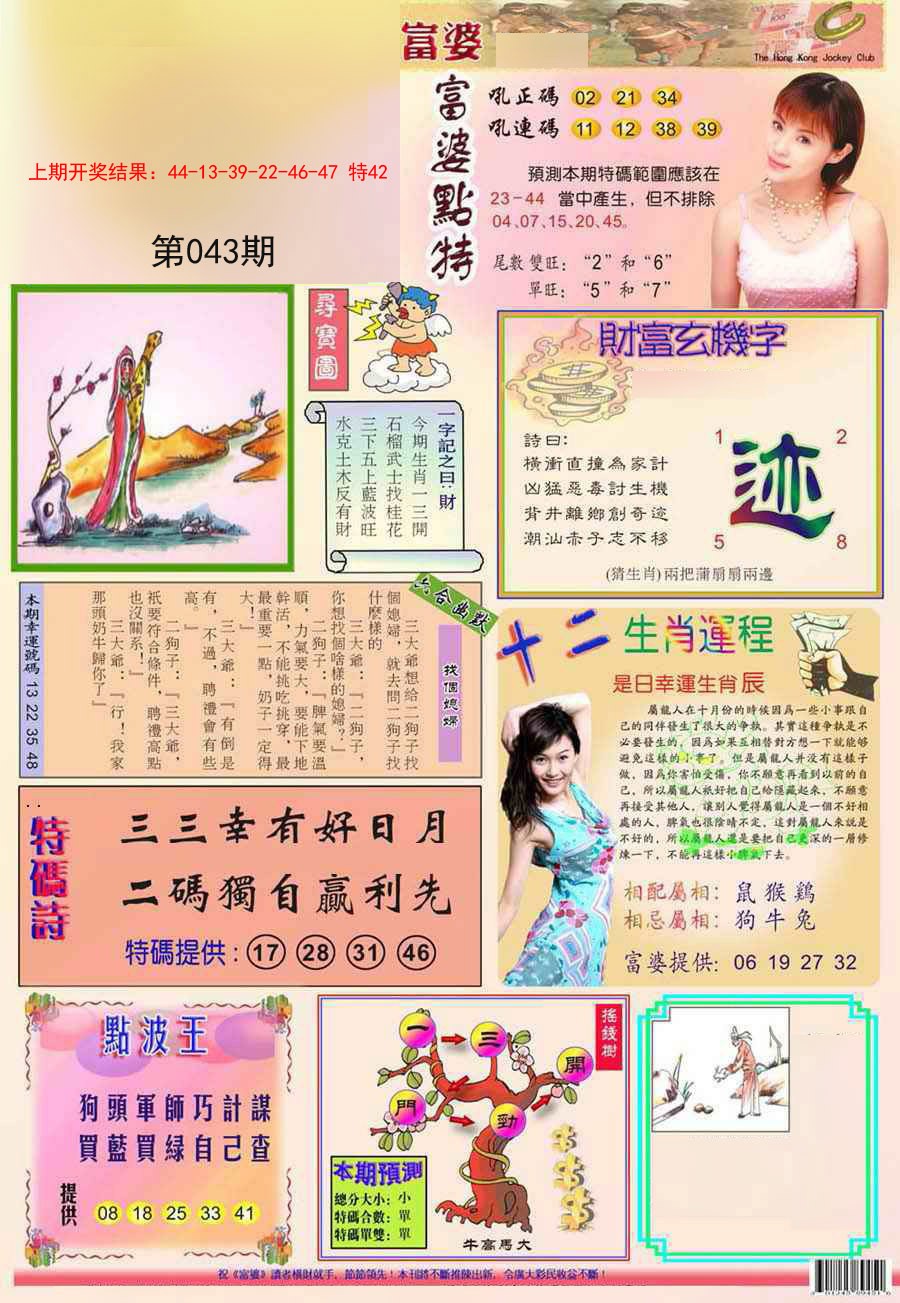 富婆
The Hong Kong Jockey Club
上期开奖结果：44-13-39-22-46-47 特42
第043期
富婆點特
吼正碼 02 21 34
吼連碼 11 12 38 39
預測本期特碼範圍應該在
23-44 當中產生，但不排除
04、07、15、20、45。
尾數雙旺：“2”和“6”
單旺：“5”和“7”
尋寶圖
一字記之曰：財
今期生肖一三開
石榴武士找桂花
三下五上藍波旺
水克土木反有財
財富玄機字
詩曰：
橫衝直撞為家計
凶猛惡毒討生機
背井離鄉創奇迹
潮汕赤子志不移
1 2
迹
5 8
(猜生肖)兩把蒲扇扇兩邊
六合幽默
找個媳婦
三大爺想給二狗子找
個媳婦，就去問二狗子找
什麼樣的
三大爺：『二狗子，
你想找個啥樣的媳婦？』
二狗子：『脾氣要溫
順，力氣要大，要能下地
幹活，不能挑吃挑穿，最
最重要一點，奶子一定得
大！』
三大爺：『有倒是
有，不過，聘禮會有些
高。』
二狗子：『三大爺，
衹要符合條件，聘禮高點
也沒關系！』
三大爺：『行！我家
那頭奶牛歸你了』
本期幸運號碼 13 22 35 48
十二生肖運程
是日幸運生肖辰
屬龍人在十月份的時候因為一些小事跟自
己的同伴發生了很大的爭執。其實這種爭執是不
必要發生的，因為如果互相替對方想一下就能够
避免這樣的小事了。但是屬龍人并没有這樣子
做，因為你害怕受傷，你不願意再看到以前的自
己，所以屬龍人衹好把自己給隱藏起來，不願意
再接受其他人，讓别人覺得屬龍人是一個不好相
處的人，脾氣也很陰晴不定，這對屬龍人來説是
不好的，所以屬龍人還是要把自己更深的一層修
煉一下，不能再這樣小脾氣下去。
相配屬相：鼠猴鷄
相忌屬相：狗牛兔
富婆提供：06 19 27 32
特碼詩
三三幸有好日月
二碼獨自贏利先
特碼提供：17 28 31 46
點波王
狗頭軍師巧計謀
買藍買綠自己查
提供 08 18 25 33 41
搖錢樹
一 三 開
門 勁
本期預測
總分大小：小
特碼合數：單
特碼單雙：單
牛高馬大
祝《富婆》讀者橫財就手，節節領先！本刊將不斷推陳出新，令廣大彩民收益不斷！